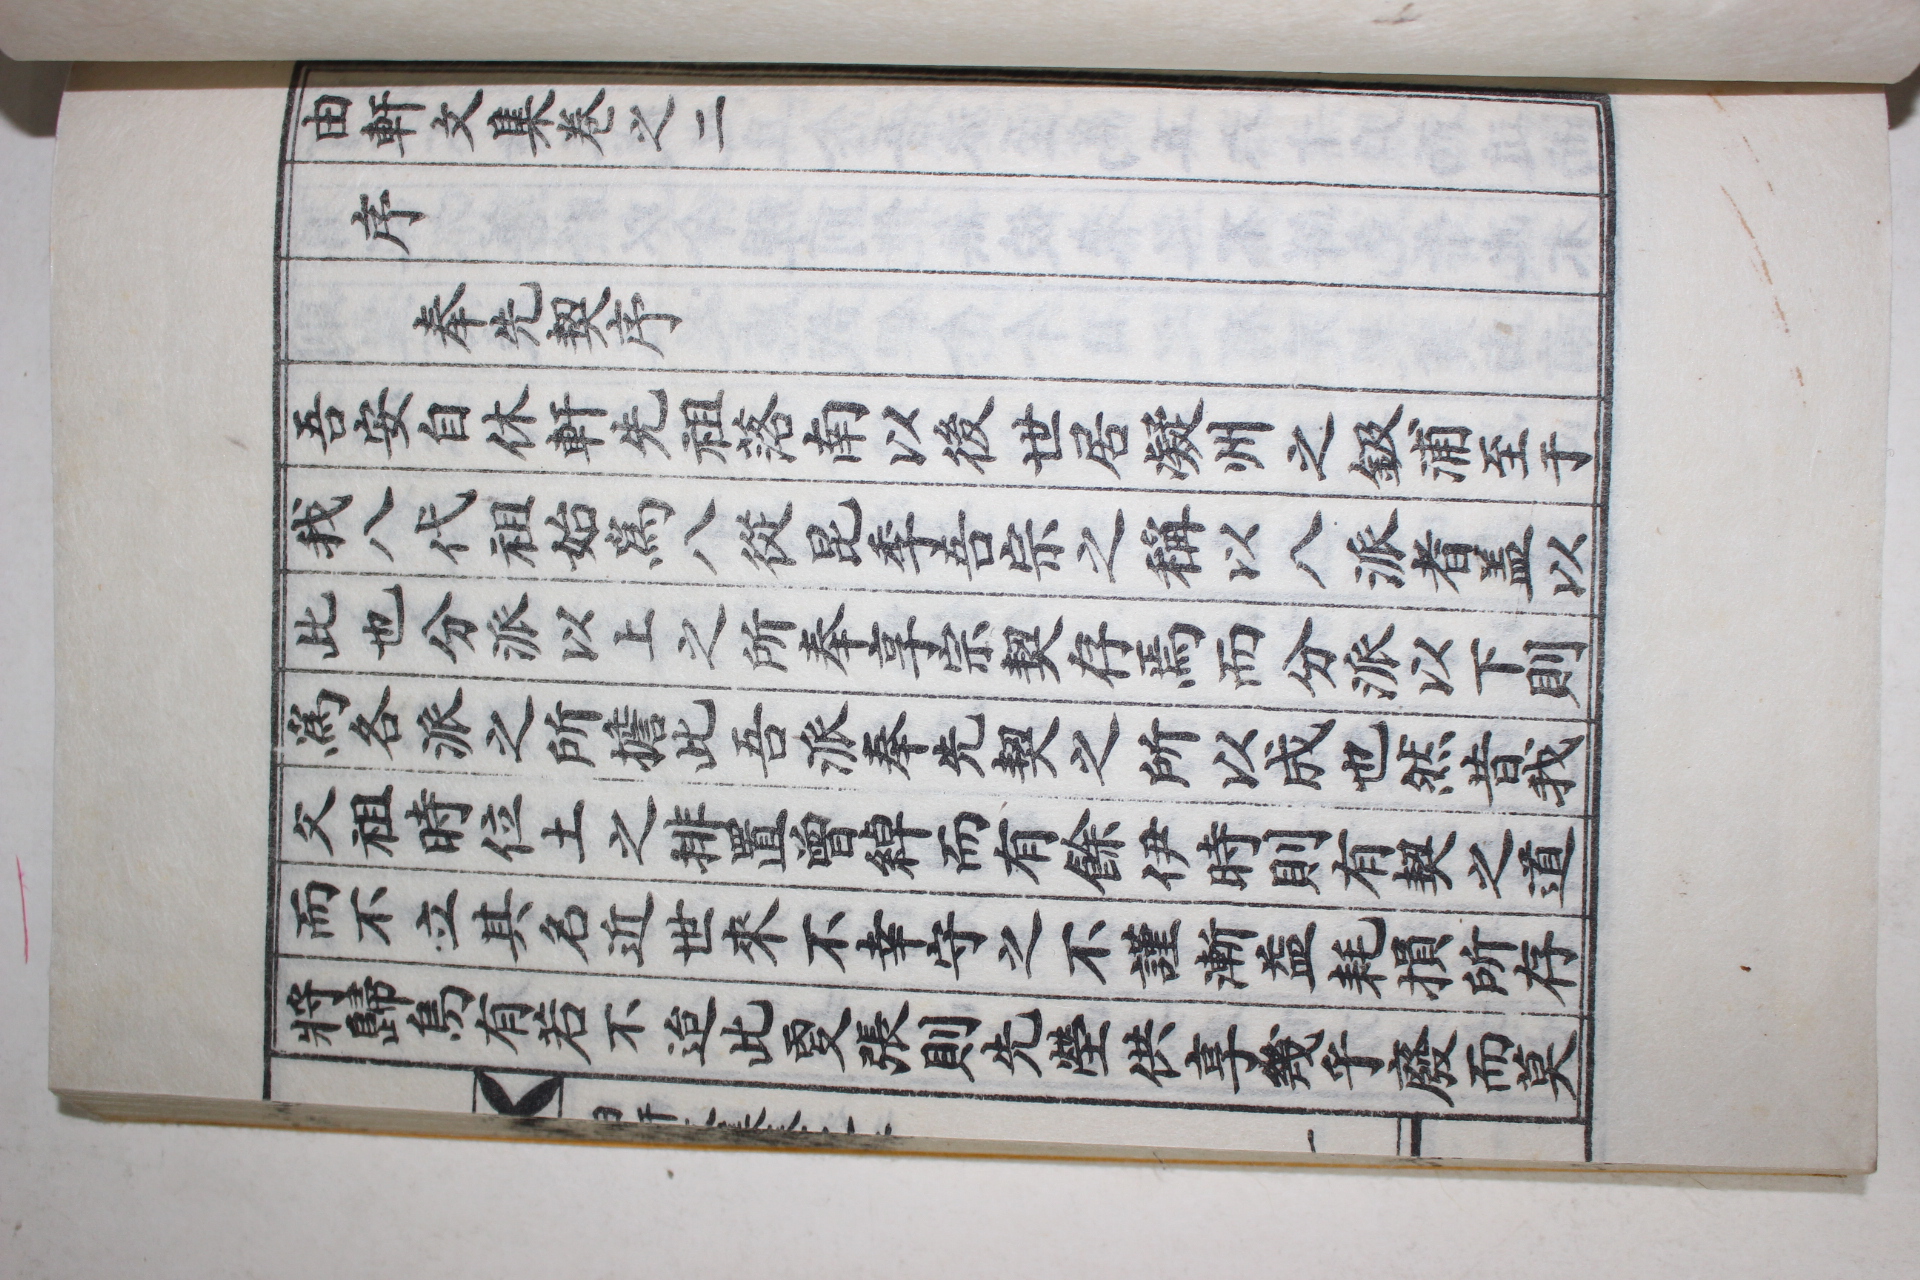 由軒文集卷之二
序
奉先契序
吾安自休軒先祖落南以後世居凝州之鈒浦至于
我八代祖始爲八從昆季吾宗之稱以八派者盖以
此也分派以上之所奉享宗契存焉而分派以下則
爲各派之所擔此吾派奉先契之所以成也然昔我
父祖時位土之排置曾綽而有餘伊時則有契之道
而不立其名近世來不幸守之不謹漸益耗損所存
將歸烏有若不迨此更張則先塋供享幾乎廢而莫